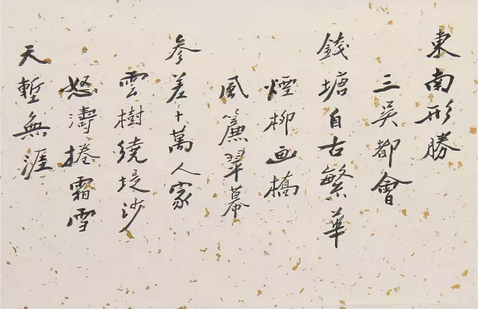 東南形勝
三吳都會
錢塘自古繁華
煙柳画橋
風簾翠幕
參差十萬人家
雲樹繞堤沙
怒濤捲霜雪
天塹無涯